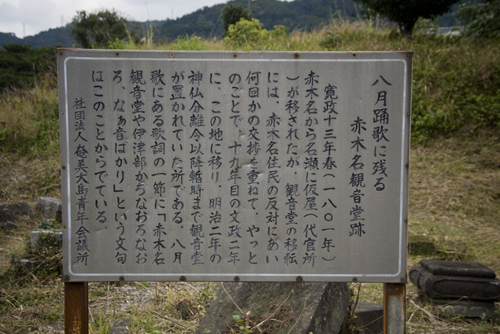 八月踊歌に残る
赤木名観音堂跡
寛政十三年春(一八〇一年)
赤木名から名瀬に仮屋(代官所
)が移されたが、観音堂の移転
には、赤木名住民の反対にあい
何回かの交捗を重ねて、やっと
のことで、十九年目の文政二年
に、この地に移り、明治二年の
神仏分離令以降暫時まで観音堂
が置かれていた所である。八月
歌にある歌詞の一節に「赤木名
観音堂や伊津部かちなおろなお
ろ、なぁ音ばかり」という文句
はこのことからでている。
社団法人奄美大島青年会議所